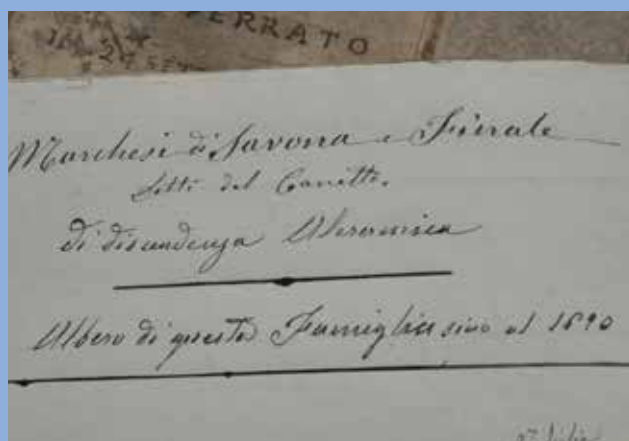 ERRATO
27 SET
Marchesi di Savona e Finale
detti del Carretto
di discendenza Aleramica
Albero di questa Famiglia sino al 1890